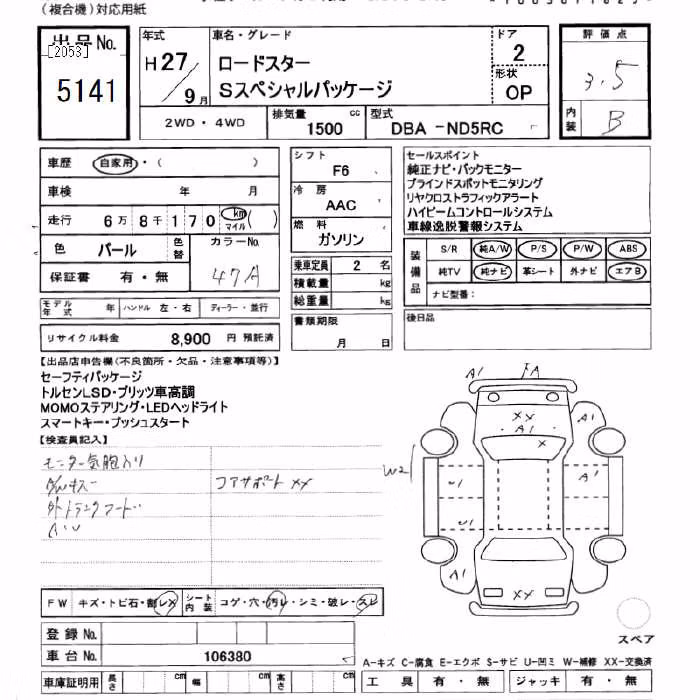 (複合機)対応用紙
出品No.
[2053]
5141
年式
H27/9月
車名・グレード
ロードスター
Sスペシャルパッケージ
ドア
2
形状
OP
評価点
3.5
内装
B
2WD・4WD
排気量
1500 cc
型式
DBA -ND5RC
車歴 自家用・( )
車検 年 月
走行 6万8千170 km マイル ( )
色 パール 色替 カラーNo. 47A
保証書 有・無
シフト
F6
冷房
AAC
燃料
ガソリン
乗車定員 2 名
積載量 kg
総重量 kg
書類期限
月 日
セールスポイント
純正ナビ・バックモニター
ブラインドスポットモニタリング
リヤクロストラフィックアラート
ハイビームコントロールシステム
車線逸脱警報システム
装備品
S/R 純A/W P/S P/W ABS
純TV 純ナビ 革シート 外ナビ エアB
ナビ型番:
後日品
モデル年式 年 ハンドル 左・右 ディーラー・並行
リサイクル料金 8,900 円 預託済
【出品店申告欄(不良箇所・欠品・注意事項等)】
セーフティパッケージ
トルセンLSD・ブリッツ車高調
MOMOステアリング・LEDヘッドライト
スマートキー・プッシュスタート
【検査員記入】
モニター気胞入り
コアサポート XX
A1 FA
XX
A1
X
A1 A1
W2
U1 A1
U1
A1 A1
XX
スペア
FW キズ・トビ石・割レX シート内装 コゲ・穴・汚レ・シミ・破レ・スレ
登録No.
車台No. 106380
車庫証明用 長さ cm 幅 cm 高さ cm
A-キズ C-腐食 E-エクボ S-サビ U-凹ミ W-補修 XX-交換済
工具 有・無 ジャッキ 有・無